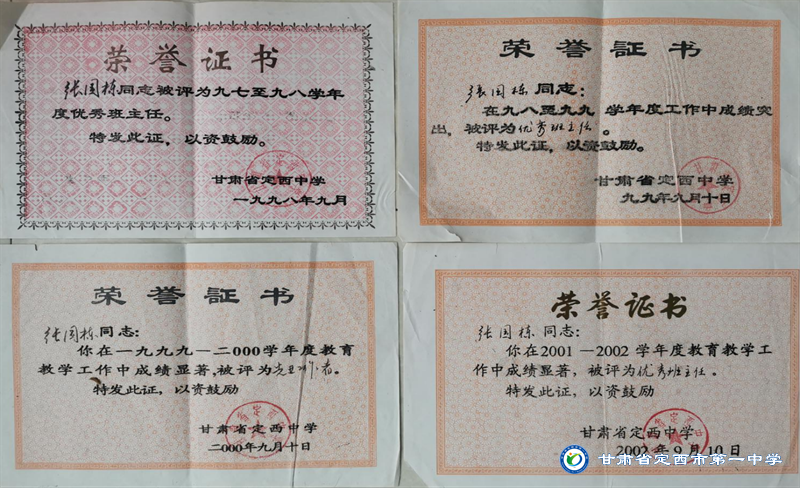 荣誉证书
张国栋同志被评为九七至九八学年
度优秀班主任。
特发此证，以资鼓励。
甘肃省定西中学
一九九八年九月
荣誉証书
张国栋 同志：
在九八至九九 学年度工作中成绩突
出，被评为优秀班主任。
特发此证，以资鼓励。
甘肃省定西中学
九九年九月十日
荣誉証书
张国栋同志：
你在一九九九—二000学年度教育
教学工作中成绩显著，被评为先进工作者。
特发此证，以资鼓励
甘肃省定西中学
二000年九月十日
荣誉证书
张国栋 同志：
你在2001—2002学年度教育教学工
作中成绩显著，被评为优秀班主任。
特发此证，以资鼓励
甘肃省定西中学
2002年9月10日
甘肃省定西市第一中学